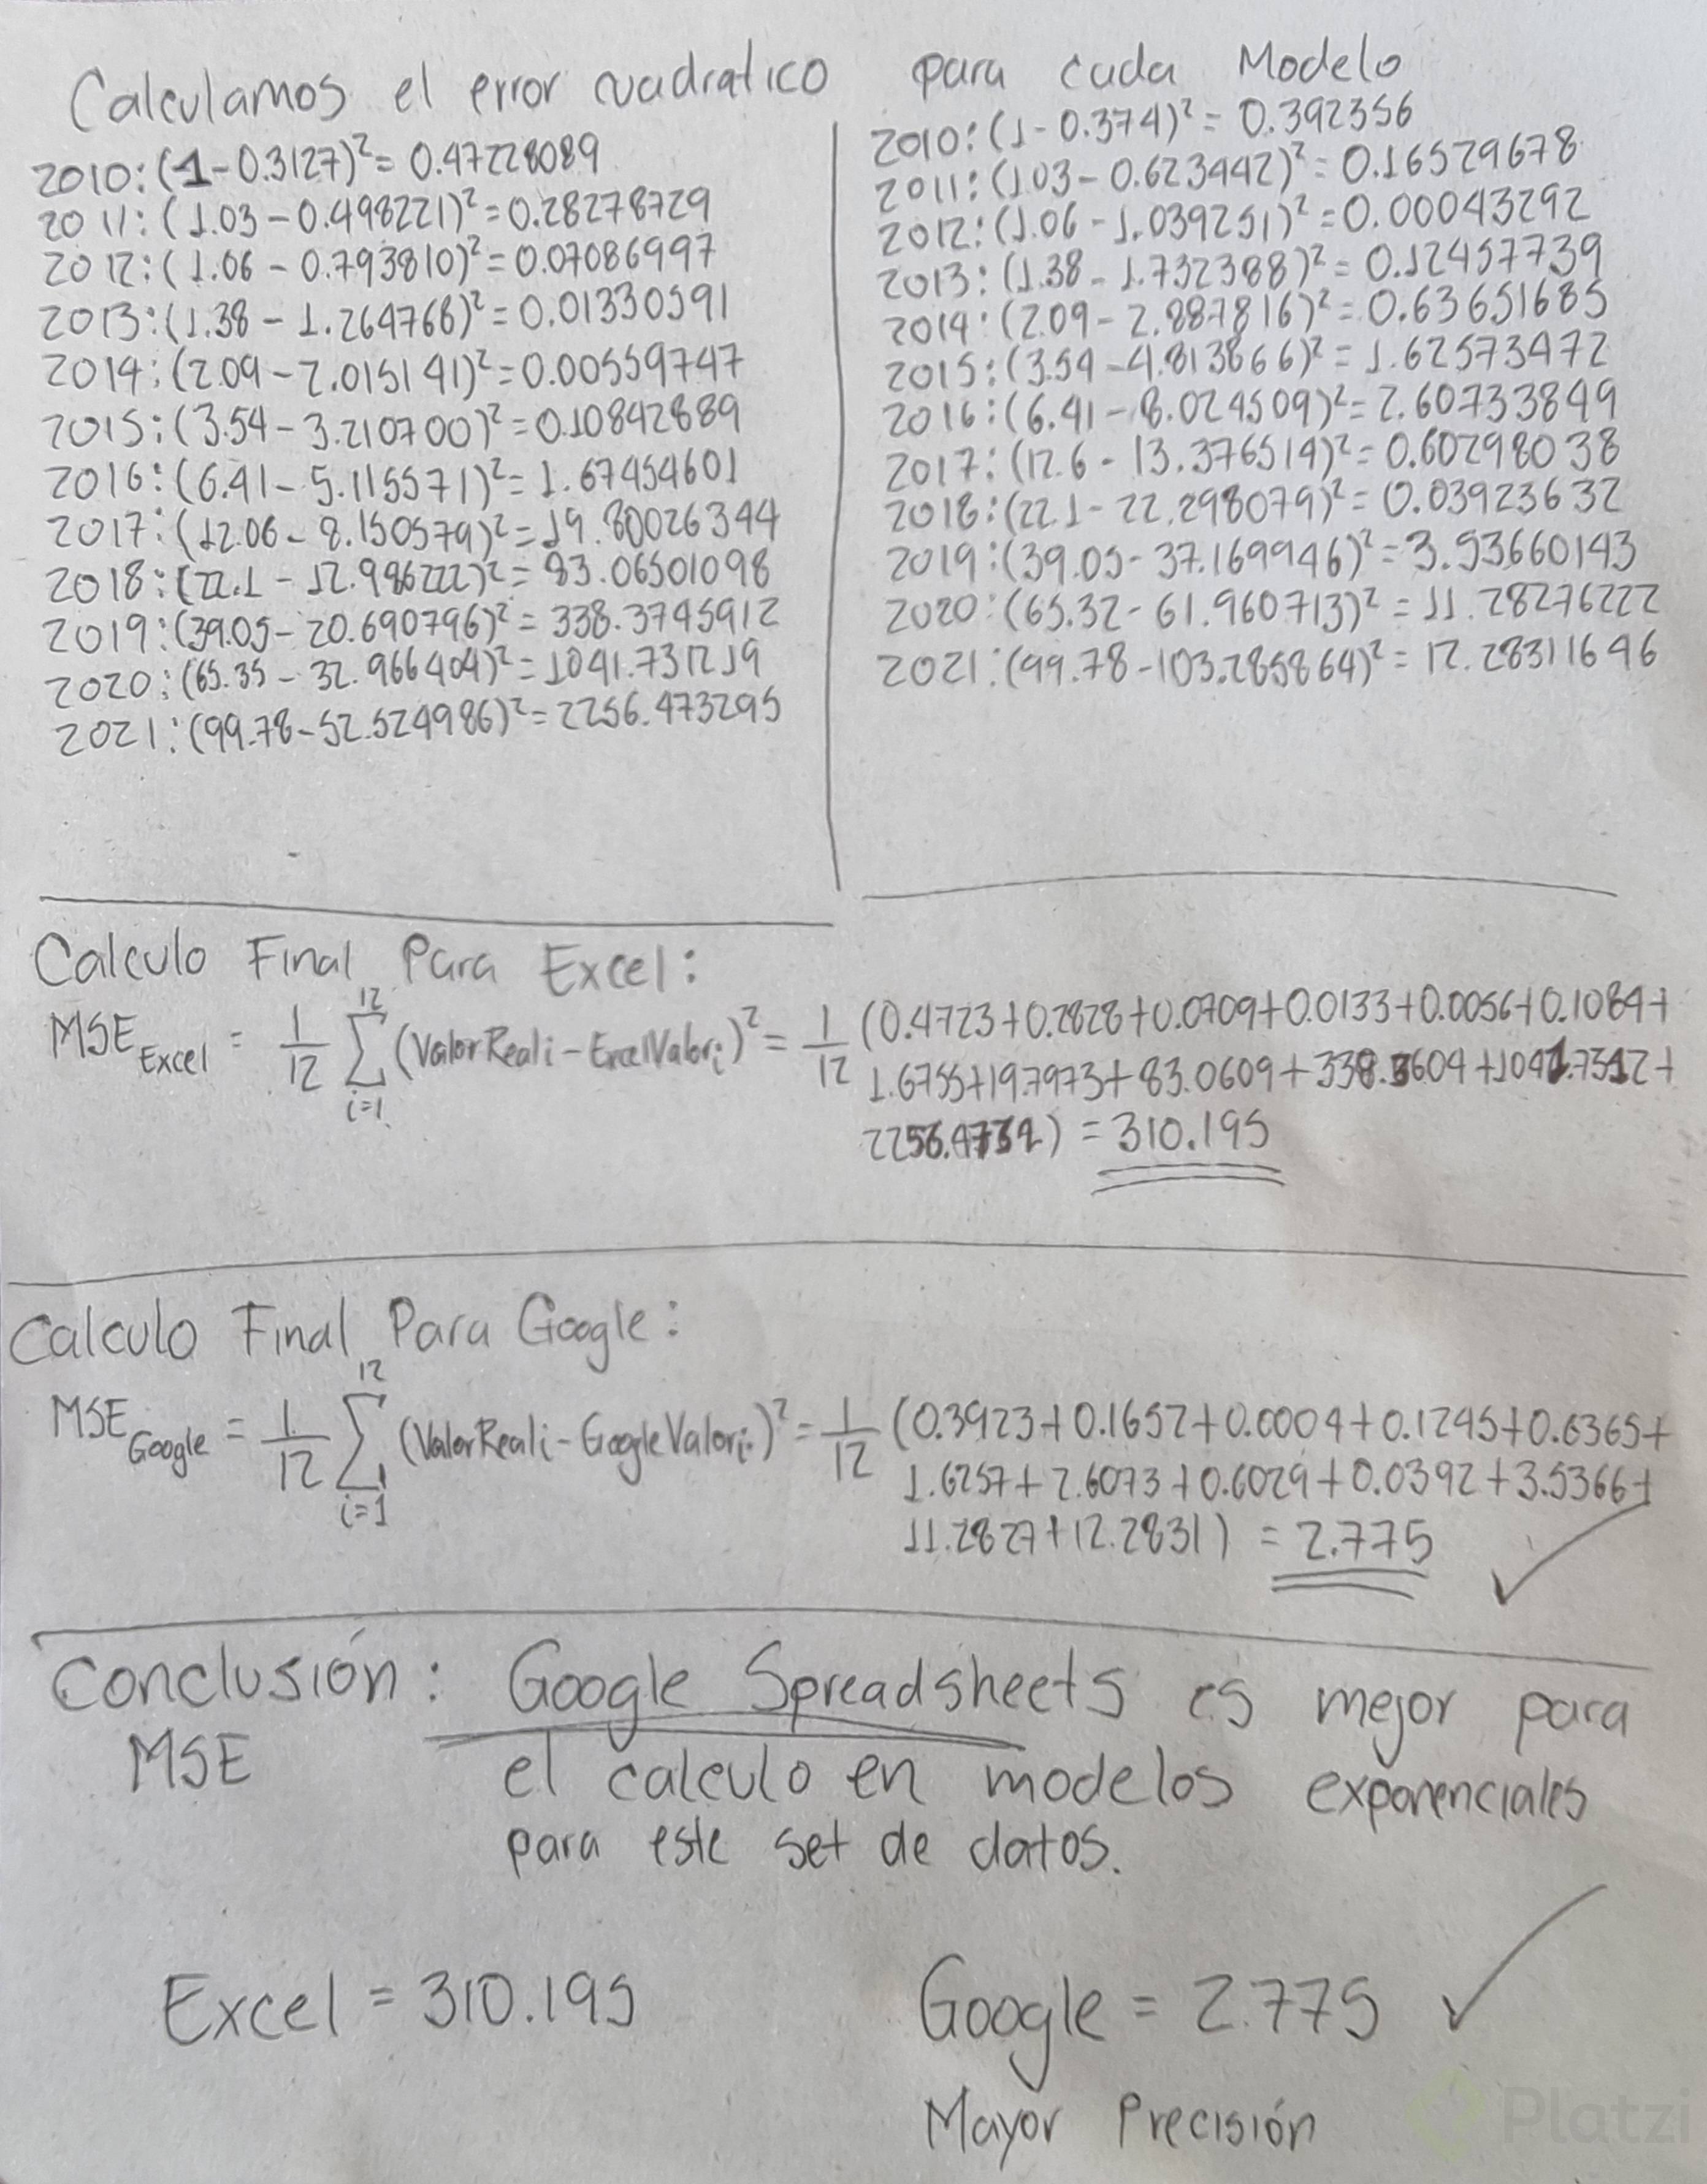 Calculamos el error cuadratico para cada Modelo
2010: (1-0.3127)² = 0.47228089
2011: (1.03-0.498221)² = 0.28278729
2012: (1.06-0.793810)² = 0.07086997
2013: (1.38-1.264768)² = 0.01330591
2014: (2.09-2.015141)² = 0.00559747
2015: (3.54-3.210700)² = 0.10842889
2016: (6.41-5.115571)² = 1.67454601
2017: (12.06-8.150579)² = 19.80026344
2018: (22.1-12.986222)² = 83.06501098
2019: (39.05-20.690796)² = 338.3745912
2020: (65.35-32.966404)² = 1041.731219
2021: (99.78-52.524986)² = 2256.473295
2010: (1-0.374)² = 0.392356
2011: (1.03-0.623442)² = 0.16529678
2012: (1.06-1.039251)² = 0.00043292
2013: (1.38-1.732388)² = 0.12457739
2014: (2.09-2.887816)² = 0.63651685
2015: (3.54-4.813866)² = 1.62573472
2016: (6.41-8.024509)² = 2.60733849
2017: (12.6-13.376514)² = 0.60298038
2018: (22.1-22.298079)² = 0.03923632
2019: (39.05-37.169946)² = 3.53660143
2020: (65.32-61.960713)² = 11.28276222
2021: (99.78-103.285864)² = 12.28311646
Calculo Final Para Excel:
MSE Excel = 1/12 12∑i=1 (ValorReali-ExcelValori)² = 1/12 (0.4723+0.2828+0.0709+0.0133+0.0056+0.1084+
1.6755+19.7973+83.0609+338.3604+1041.7312+
2256.4732) = 310.195
Calculo Final Para Google:
MSE Google = 1/12 12∑i=1 (ValorReali-GoogleValori)² = 1/12 (0.3923+0.1652+0.0004+0.1245+0.6365+
1.6257+2.6073+0.6029+0.0392+3.5366+
11.2827+12.2831) = 2.775 ✓
Conclusión: Google Spreadsheets es mejor para
MSE el calculo en modelos exponenciales
para este set de datos.
Excel = 310.195 Google = 2.775 ✓
Mayor Precisión
Platzi